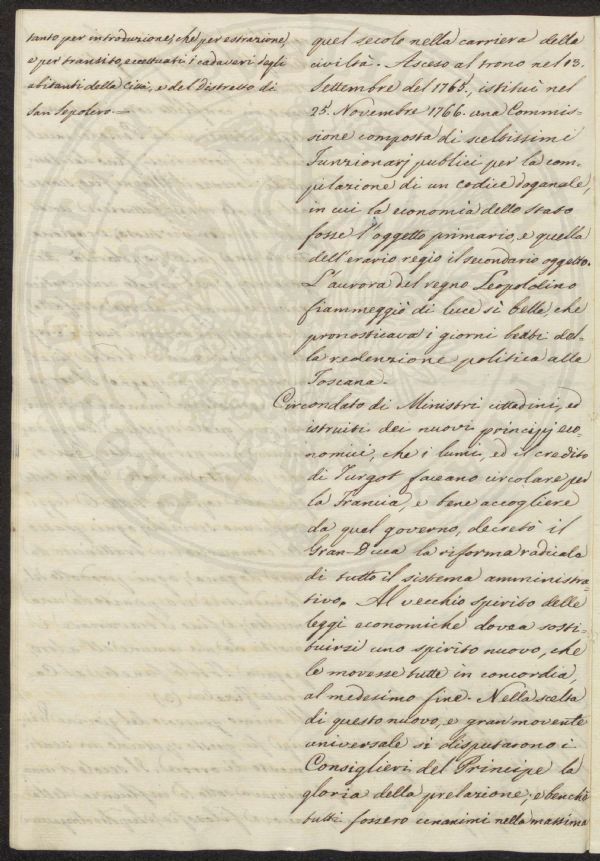 tanto per introduzione, che per estrazione,
e per transito, eccettuati i cadaveri degli
abitanti della Città, e del Distretto di
San Sepolcro.=
quel secolo nella carriera della
civiltà. Asceso al trono nel 13.
Settembre del 1765, istituì nel
25. Novembre 1766. una Commis=
sione composta di sceltissimi
Funzionarj publici per la com=
pilazione di un codice doganale,
in cui la economia dello stato
fosse l'oggetto primario, e quella
dell'erario regio il secondario oggetto.
L'aurora del regno Leopoldino
fiammeggiò di luce sì bella che
pronosticava i giorni beati del=
la redenzione politica alla
Toscana.
Circondato di Ministri cittadini, ed
istruiti dei nuovi principij eco=
nomici, che i lumi, ed il credito
di Turgot faceano circolare per
la Francia, e bene accogliere
da quel governo, decretò il
Gran-Duca la riforma radicale
di tutto il sistema amministra=
tivo. Al vecchio spirito delle
leggi economiche dovea sosti=
tuirsi uno spirito nuovo, che
le movesse tutte in concordia,
al medesimo fine. Nella scelta
di questo nuovo, e gran movente
universale si disputarono i
Consiglieri del Principe la
gloria della prelazione; e benchè
tutti fossero unanimi nella massima